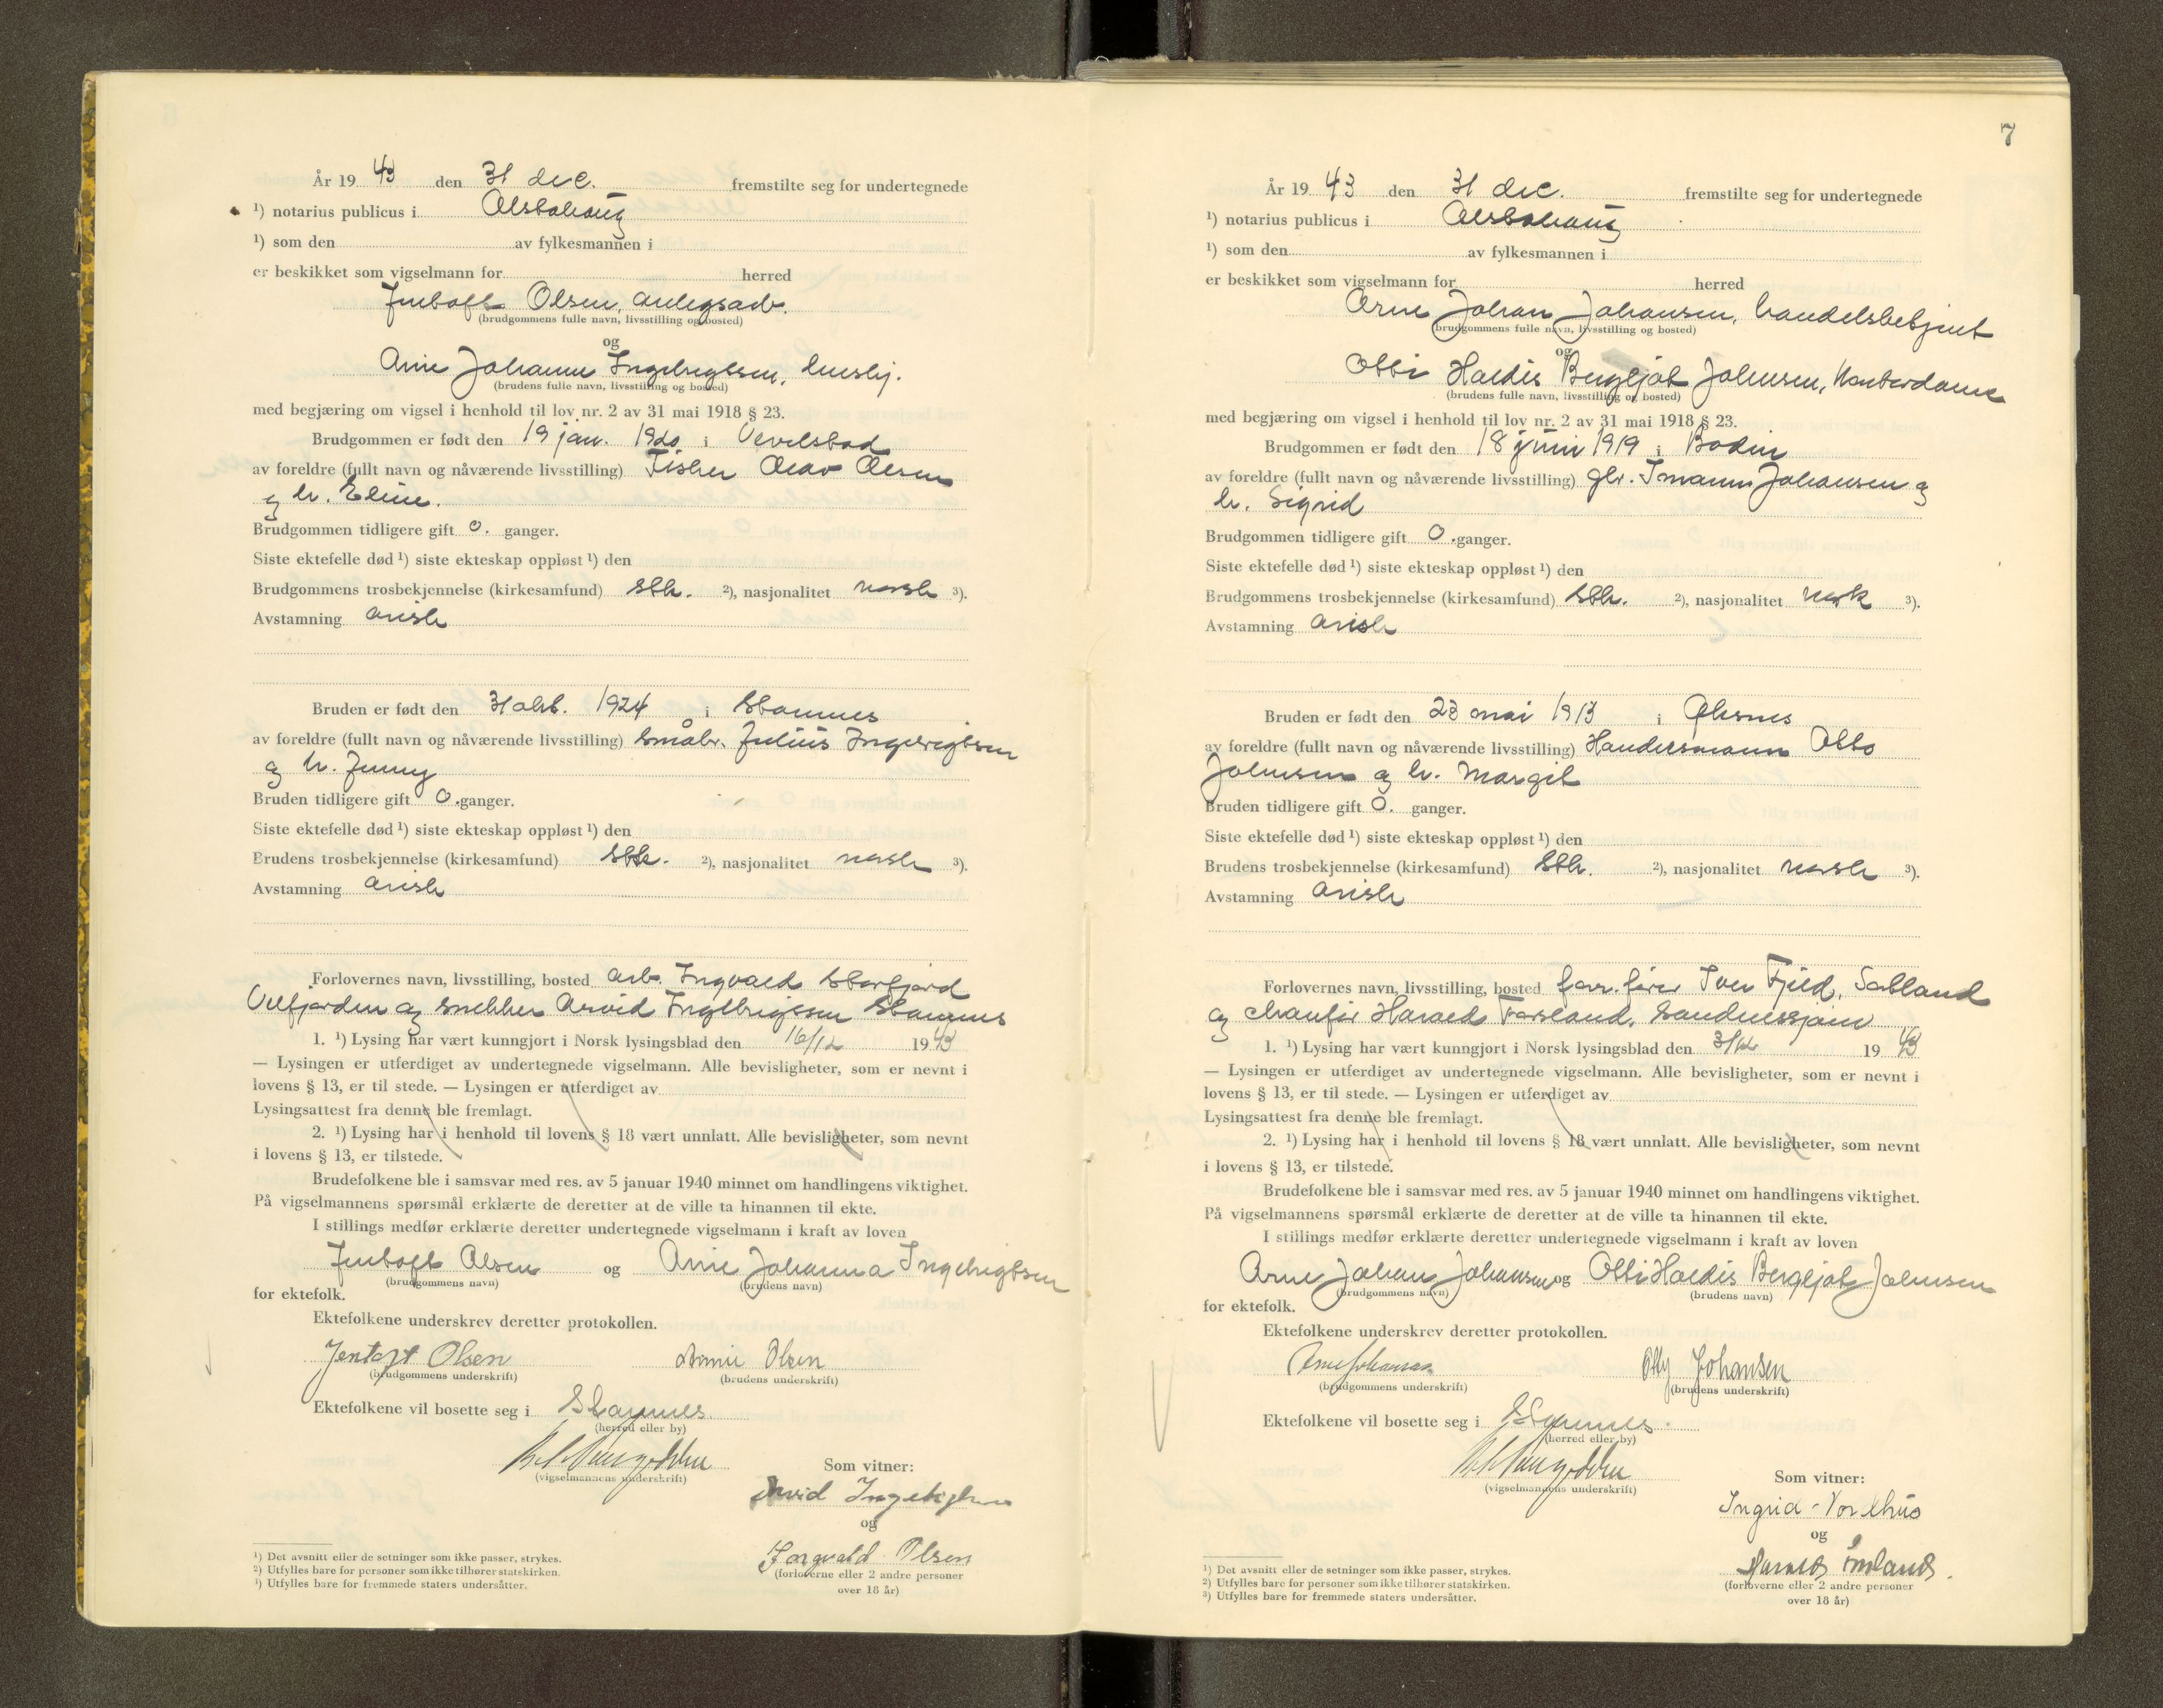 År 19 43 den 31 dec. fremstilte seg for undertegnede
¹) notarius publicus i Alstahaug
¹) som den av fylkesmannen i
er beskikket som vigselmann for herred
Jentoft Olsen, anlegsarb.
(brudgommens fulle navn, livsstilling og bosted)
og
Anie Johanna Ingebrigtsen, hushj.
(brudens fulle navn, livsstilling og bosted)
med begjæring om vigsel i henhold til lov nr. 2 av 31 mai 1918 § 23.
Brudgommen er født den 19 jan. 1920 i Vevelstad
av foreldre (fullt navn og nåværende livsstilling) Fisker Olav Olsen
og h. Eline.
Brudgommen tidligere gift 0. ganger.
Siste ektefelle død ¹) siste ekteskap oppløst ¹) den
Brudgommens trosbekjennelse (kirkesamfund) stk. ²), nasjonalitet norsk ³).
Avstamning arisk
Bruden er født den 31 okt. 1924 i Stamnes
av foreldre (fullt navn og nåværende livsstilling) småbr. Julius Ingebrigtsen
og h. Jenny
Bruden tidligere gift 0. ganger.
Siste ektefelle død ¹) siste ekteskap oppløst ¹) den
Brudens trosbekjennelse (kirkesamfund) stk. ²), nasjonalitet norsk ³).
Avstamning arisk
Forlovernes navn, livsstilling, bosted arb. Ingvald Storfjord
Velfjorden og snekker Arvid Ingebrigtsen Stamnes
1. ¹) Lysing har vært kunngjort i Norsk lysingsblad den 16/12 19 43
— Lysingen er utferdiget av undertegnede vigselmann. Alle bevisligheter, som er nevnt i
lovens § 13, er til stede. — Lysingen er utferdiget av
Lysingsattest fra denne ble fremlagt.
2. ¹) Lysing har i henhold til lovens § 18 vært unnlatt. Alle bevisligheter, som nevnt
i lovens § 13, er tilstede.
Brudefolkene ble i samsvar med res. av 5 januar 1940 minnet om handlingens viktighet.
På vigselmannens spørsmål erklærte de deretter at de ville ta hinannen til ekte.
I stillings medfør erklærte deretter undertegnede vigselmann i kraft av loven
Jentoft Olsen og Anie Johanna Ingebrigtsen
(brudgommens navn) (brudens navn)
for ektefolk.
Ektefolkene underskrev deretter protokollen.
Jentoft Olsen Annie Olsen
(brudgommens underskrift) (brudens underskrift)
Ektefolkene vil bosette seg i Stamnes
(herred eller by)
(vigselmannens underskrift)
Som vitner:
Arvid Ingebrigtsen
og
Torgvald Olsen
(forloverne eller 2 andre personer
over 18 år)
¹) Det avsnitt eller de setninger som ikke passer, strykes.
²) Utfylles bare for personer som ikke tilhører statskirken.
³) Utfylles bare for fremmede staters undersåtter.
7
År 19 43 den 31 dec. fremstilte seg for undertegnede
¹) notarius publicus i Alstahaug
¹) som den av fylkesmannen i
er beskikket som vigselmann for herred
Arne Johan Johansen, handelsbetjent
(brudgommens fulle navn, livsstilling og bosted)
og
Otti Haldis Bergljot Johnsen, kontordame
(brudens fulle navn, livsstilling og bosted)
med begjæring om vigsel i henhold til lov nr. 2 av 31 mai 1918 § 23.
Brudgommen er født den 18 juni 1919 i Bodin
av foreldre (fullt navn og nåværende livsstilling) Johansen og
h. Sigrid
Brudgommen tidligere gift 0. ganger.
Siste ektefelle død ¹) siste ekteskap oppløst ¹) den
Brudgommens trosbekjennelse (kirkesamfund) stk. ²), nasjonalitet norsk ³).
Avstamning arisk
Bruden er født den 23 mai 1913 i Øksnes
av foreldre (fullt navn og nåværende livsstilling) Handelsmann Otto
Johnsen og h. Margit
Bruden tidligere gift 0. ganger.
Siste ektefelle død ¹) siste ekteskap oppløst ¹) den
Brudens trosbekjennelse (kirkesamfund) stk. ²), nasjonalitet norsk ³).
Avstamning arisk
Forlovernes navn, livsstilling, bosted forr.fører Iver Fjeld, Salland
og chaufør Harald Forsland, Sandnessjøen
1. ¹) Lysing har vært kunngjort i Norsk lysingsblad den 3/12 19 43
— Lysingen er utferdiget av undertegnede vigselmann. Alle bevisligheter, som er nevnt i
lovens § 13, er til stede. — Lysingen er utferdiget av
Lysingsattest fra denne ble fremlagt.
2. ¹) Lysing har i henhold til lovens § 18 vært unnlatt. Alle bevisligheter, som nevnt
i lovens § 13, er tilstede.
Brudefolkene ble i samsvar med res. av 5 januar 1940 minnet om handlingens viktighet.
På vigselmannens spørsmål erklærte de deretter at de ville ta hinannen til ekte.
I stillings medfør erklærte deretter undertegnede vigselmann i kraft av loven
Arne Johan Johansen og Otti Haldis Bergljot Johnsen
(brudgommens navn) (brudens navn)
for ektefolk.
Ektefolkene underskrev deretter protokollen.
Arne Johansen Otty Johansen
(brudgommens underskrift) (brudens underskrift)
Ektefolkene vil bosette seg i Stamnes.
(herred eller by)
(vigselmannens underskrift)
Som vitner:
Ingrid Nordhus
og
Harald Forsland.
(forloverne eller 2 andre personer
over 18 år)
¹) Det avsnitt eller de setninger som ikke passer, strykes.
²) Utfylles bare for personer som ikke tilhører statskirken.
³) Utfylles bare for fremmede staters undersåtter.